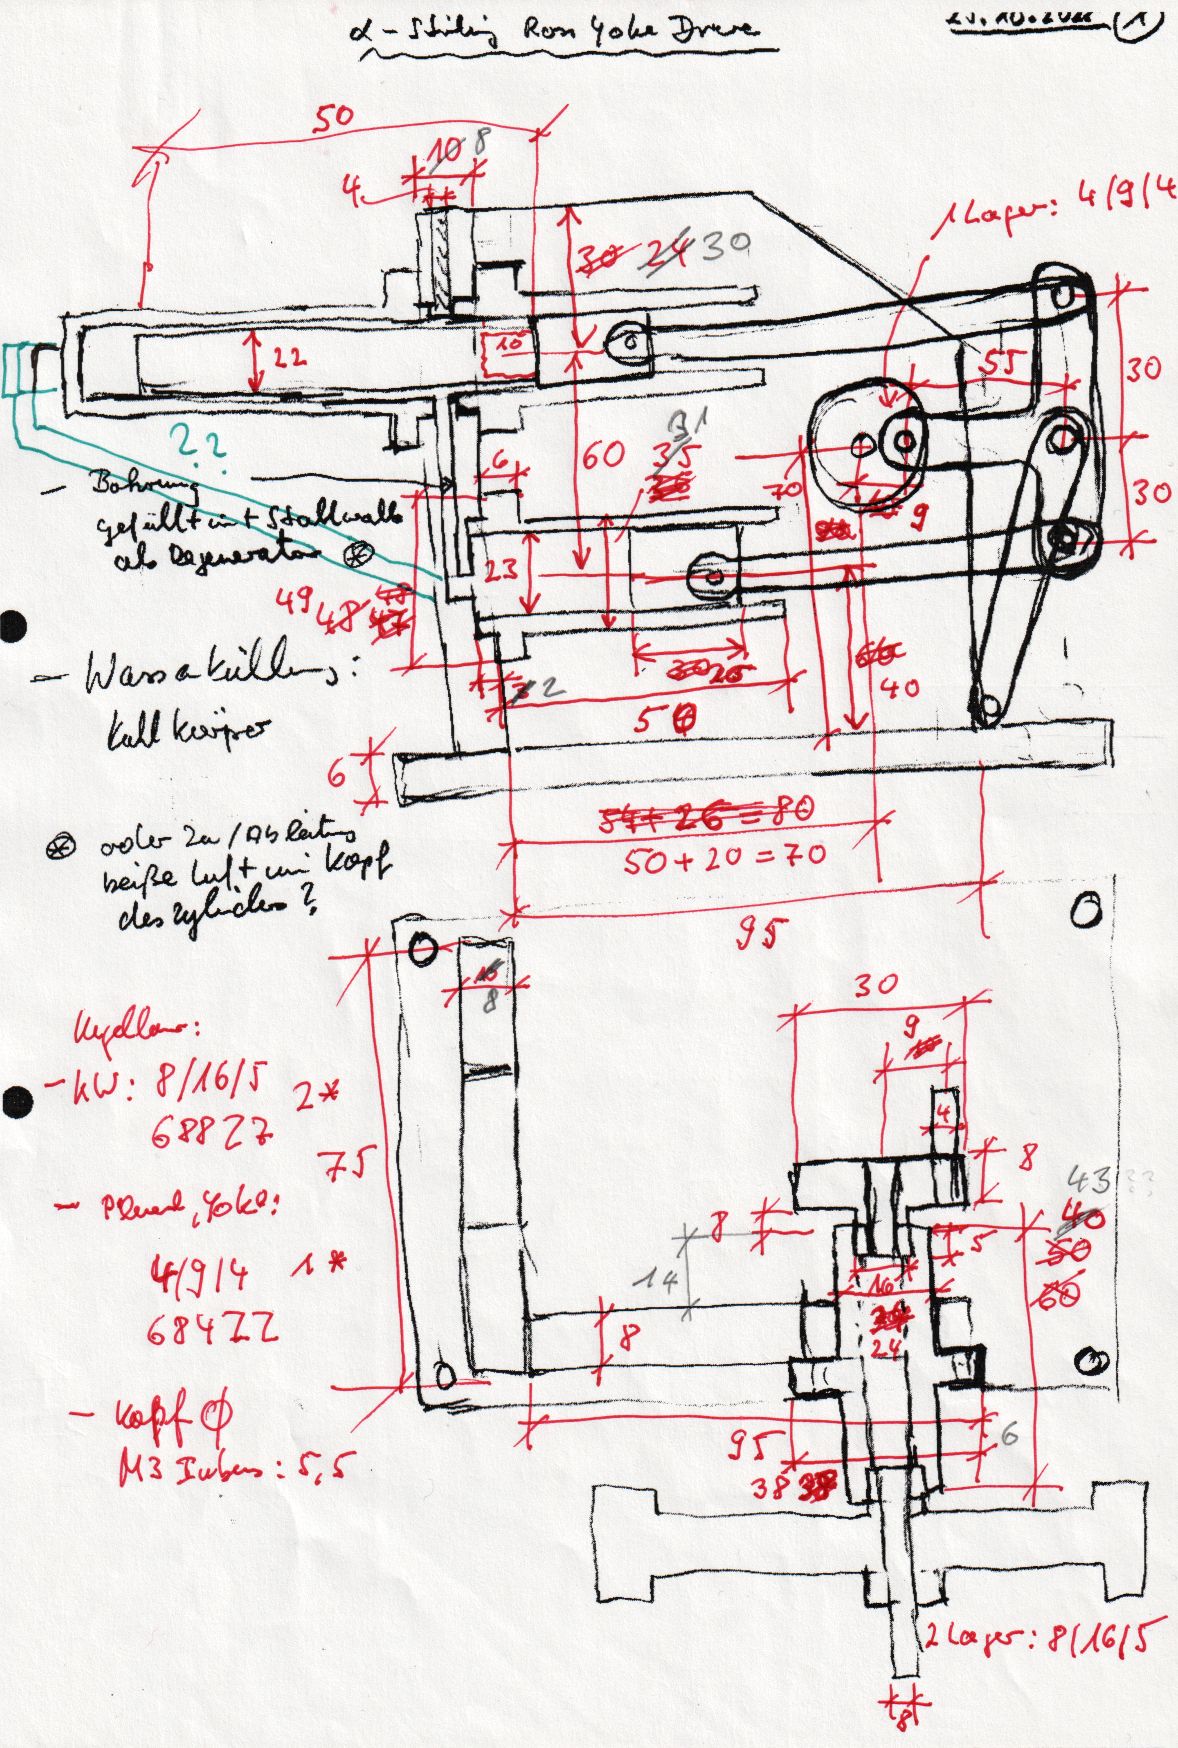 α-Stirling Ross Yoke Drive
(1)
50
10 8
4
1 Lager: 4/9/4
30 24 30
22
10
55
30
??
31
60
35
6
70
9
30
- Bohrung
gefüllt mit Stahlwolle
als Regenerator ⊛
23
49 48 47
40
- Wasserkühlung:
Kühlkörper
2
30 25
50
6
54+26=80
50+20=70
⊛ oder Zu/Ableitung
heiße Luft im Kopf
des Zylinders?
95
30
10
8
9
4
8
Kugellager:
- KW: 8/16/5 2*
688ZZ
75
43 ??
40
50
60
8
5
14
- Pleuel, Yoke:
4/9/4 1*
684ZZ
16
24
8
- Kopf Ø
M3 Inbus: 5,5
95
6
38
2 Lager: 8/16/5
8